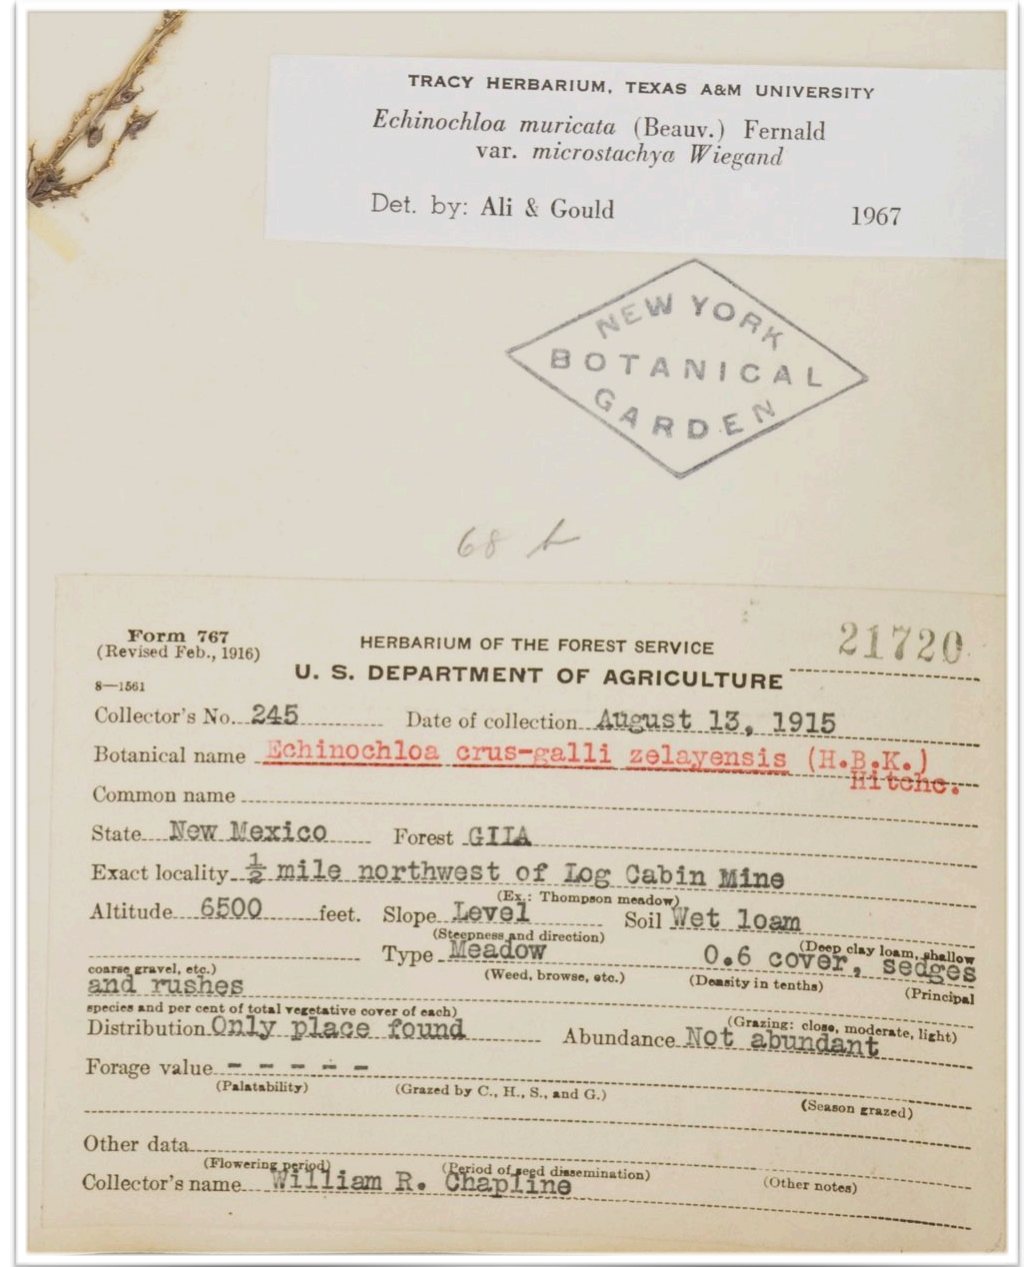 TRACY HERBARIUM, TEXAS A&M UNIVERSITY
Echinochloa muricata (Beauv.) Fernald
var. microstachya Wiegand
Det. by: Ali & Gould 1967
NEW YORK
BOTANICAL
GARDEN
68
Form 767
(Revised Feb., 1916)
8—1561
HERBARIUM OF THE FOREST SERVICE
21720
U. S. DEPARTMENT OF AGRICULTURE
Collector's No. 245 Date of collection August 13, 1915
Botanical name Echinochloa crus-galli zelayensis (H.B.K.)
Hitchc.
Common name
State New Mexico Forest GIIA
Exact locality ½ mile northwest of Log Cabin Mine
(Ex.: Thompson meadow)
Altitude 6500 feet. Slope Level Soil Wet loam
(Steepness and direction) (Deep clay loam, shallow
Type Meadow 0.6 cover, sedges
coarse gravel, etc.) (Weed, browse, etc.) (Density in tenths) (Principal
and rushes
species and per cent of total vegetative cover of each)
Distribution Only place found Abundance Not abundant
(Grazing: close, moderate, light)
Forage value - - - - -
(Palatability) (Grazed by C., H., S., and G.) (Season grazed)
Other data
(Flowering period) (Period of seed dissemination) (Other notes)
Collector's name William R. Chapline